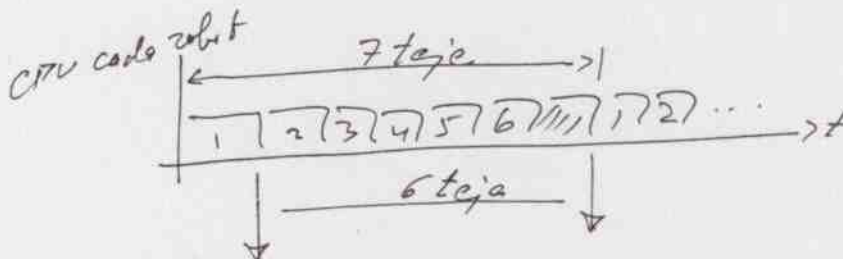 CPU cada robot
7 teje
1 2 3 4 5 6 1 2 ...
t
6 teje